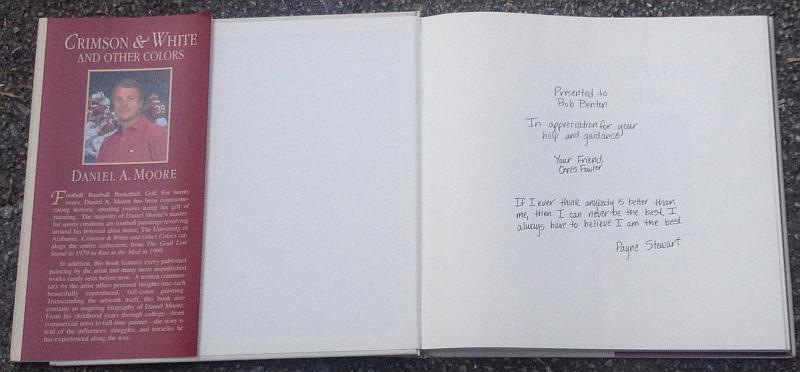 CRIMSON & WHITE
AND OTHER COLORS
39
DANIEL A. MOORE
Football. Baseball. Basketball. Golf. For twenty
years, Daniel A. Moore has been commemo-
rating historic sporting events using his gift of
painting. The majority of Daniel Moore's master-
ful sports creations are football paintings revolving
around his beloved alma mater, The University of
Alabama. Crimson & White and Other Colors cat-
alogs the entire collection, from The Goal Line
Stand in 1979 to Run in the Mud in 1999.
In addition, this book features every published
painting by the artist and many more unpublished
works rarely seen before now. A written commen-
tary by the artist offers personal insights into each
beautifully reproduced, full-color painting.
Transcending the artwork itself, this book also
contains an inspiring biography of Daniel Moore.
From his childhood years through college—from
commercial artist to full-time painter—the story is
told of the influences, struggles, and miracles he
has experienced along the way.
Presented to
Bob Benton
In appreciation for your
help and guidance
Your Friend,
Chris Fowler
If I ever think anybody is better than
me, then I can never be the best. I
always have to believe I am the best.
Payne Stewart